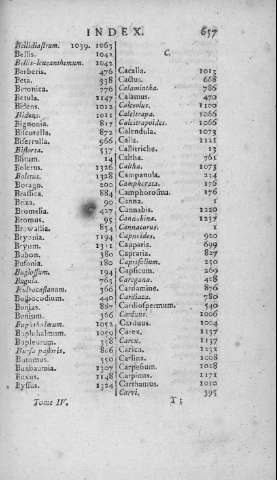 INDEX. 657
Bellidiastrum. 1039. 1063
Bellis. 1042
Bellis-leucanthemum. 1042
Berberis. 476
Beta. 338
Betonica. 770
Betula. 1147
Bidens. 1012
Bidens. 1011
Bignonia. 817
Biscutella. 872
Biserrula. 966
Bistorta. 537
Blitum. 14
Boletus. 1326
Boletus. 1328
Borago. 200
Brassica. 884
Briza. 90
Bromelia. 427
Bromus. 95
Browallia. 834
Bryonia. 1194
Bryum. 1312
Bubon. 380
Bufonia. 180
Buglossum. 194
Bugula. 763
Bulbocastanum. 366
Bulbocodium. 440
Bunias. 887
Bunium. 366
Buphthalmum. 1052
Buphthalmum. 1059
Bupleurum. 358
Bursa pastoris. 866
Butomus. 550
Buxbaumia. 1307
Buxus. 1148
Byssus. 1324
C.
Cacalia. 1013
Cactus. 668
Calamintha. 786
Calamus. 470
Calceolus. 1100
Calcitrapa. 1066
Calcitrapoides. 1066
Calendula. 1073
Calla. 1125
Callitriche. 13
Caltha. 761
Caltha. 1073
Campanula. 214
Camphorata. 176
Camphorosma. 176
Canna. 1
Cannabis. 1220
Cannabina. 1237
Cannacorus. 1
Capnoides. 920
Capparis. 699
Capraria. 827
Caprifolium. 250
Capsicum. 269
Caragana. 428
Cardamine. 876
Cardiaca. 780
Cardiospermum. 540
Carduus. 1006
Carduus. 1004
Carex. 1137
Carex. 1137
Carica. 1231
Carlina. 1008
Carpesium. 1018
Carpinus. 1171
Carthamus. 1010
Carvi. 395
Tome IV. T t